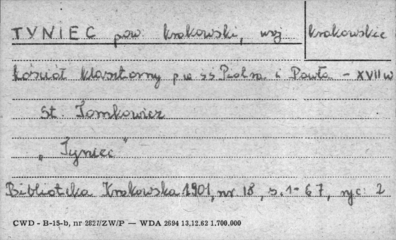 TYNIEC pow. krakowski, woj. krakowskie
kościół klasztorny p.w. ss Piotra i Pawła - XVII w
St. Tomkowicz
"Tyniec"
Biblioteka Krakowska 1901, nr. 18, s. 1-67, ryc. 2
CWD - B-15-b, nr 2827/ZW/P — WDA 2694 13.12.62 1.700.000